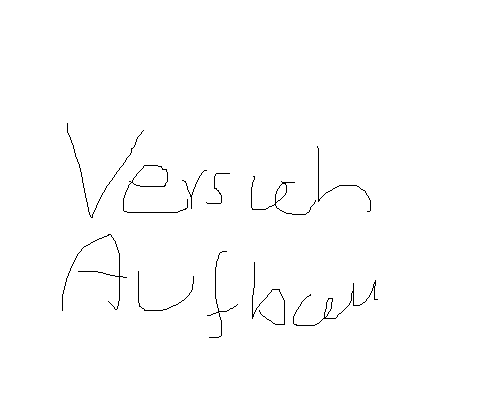 Versuch
Aufbau